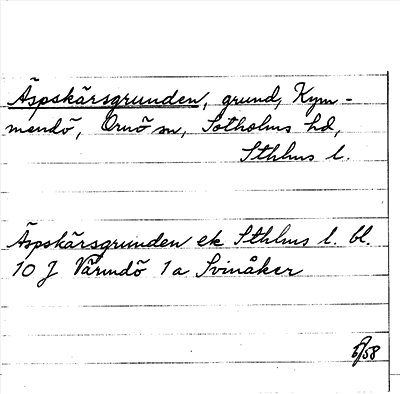 Äspskärsgrunden, grund, Kym-
mendö, Ornö sn, Sotholms hd,
Sthlms l.
Äspskärsgrunden ek Sthlms l. bl.
10 J Värmdö 1a Svinåker